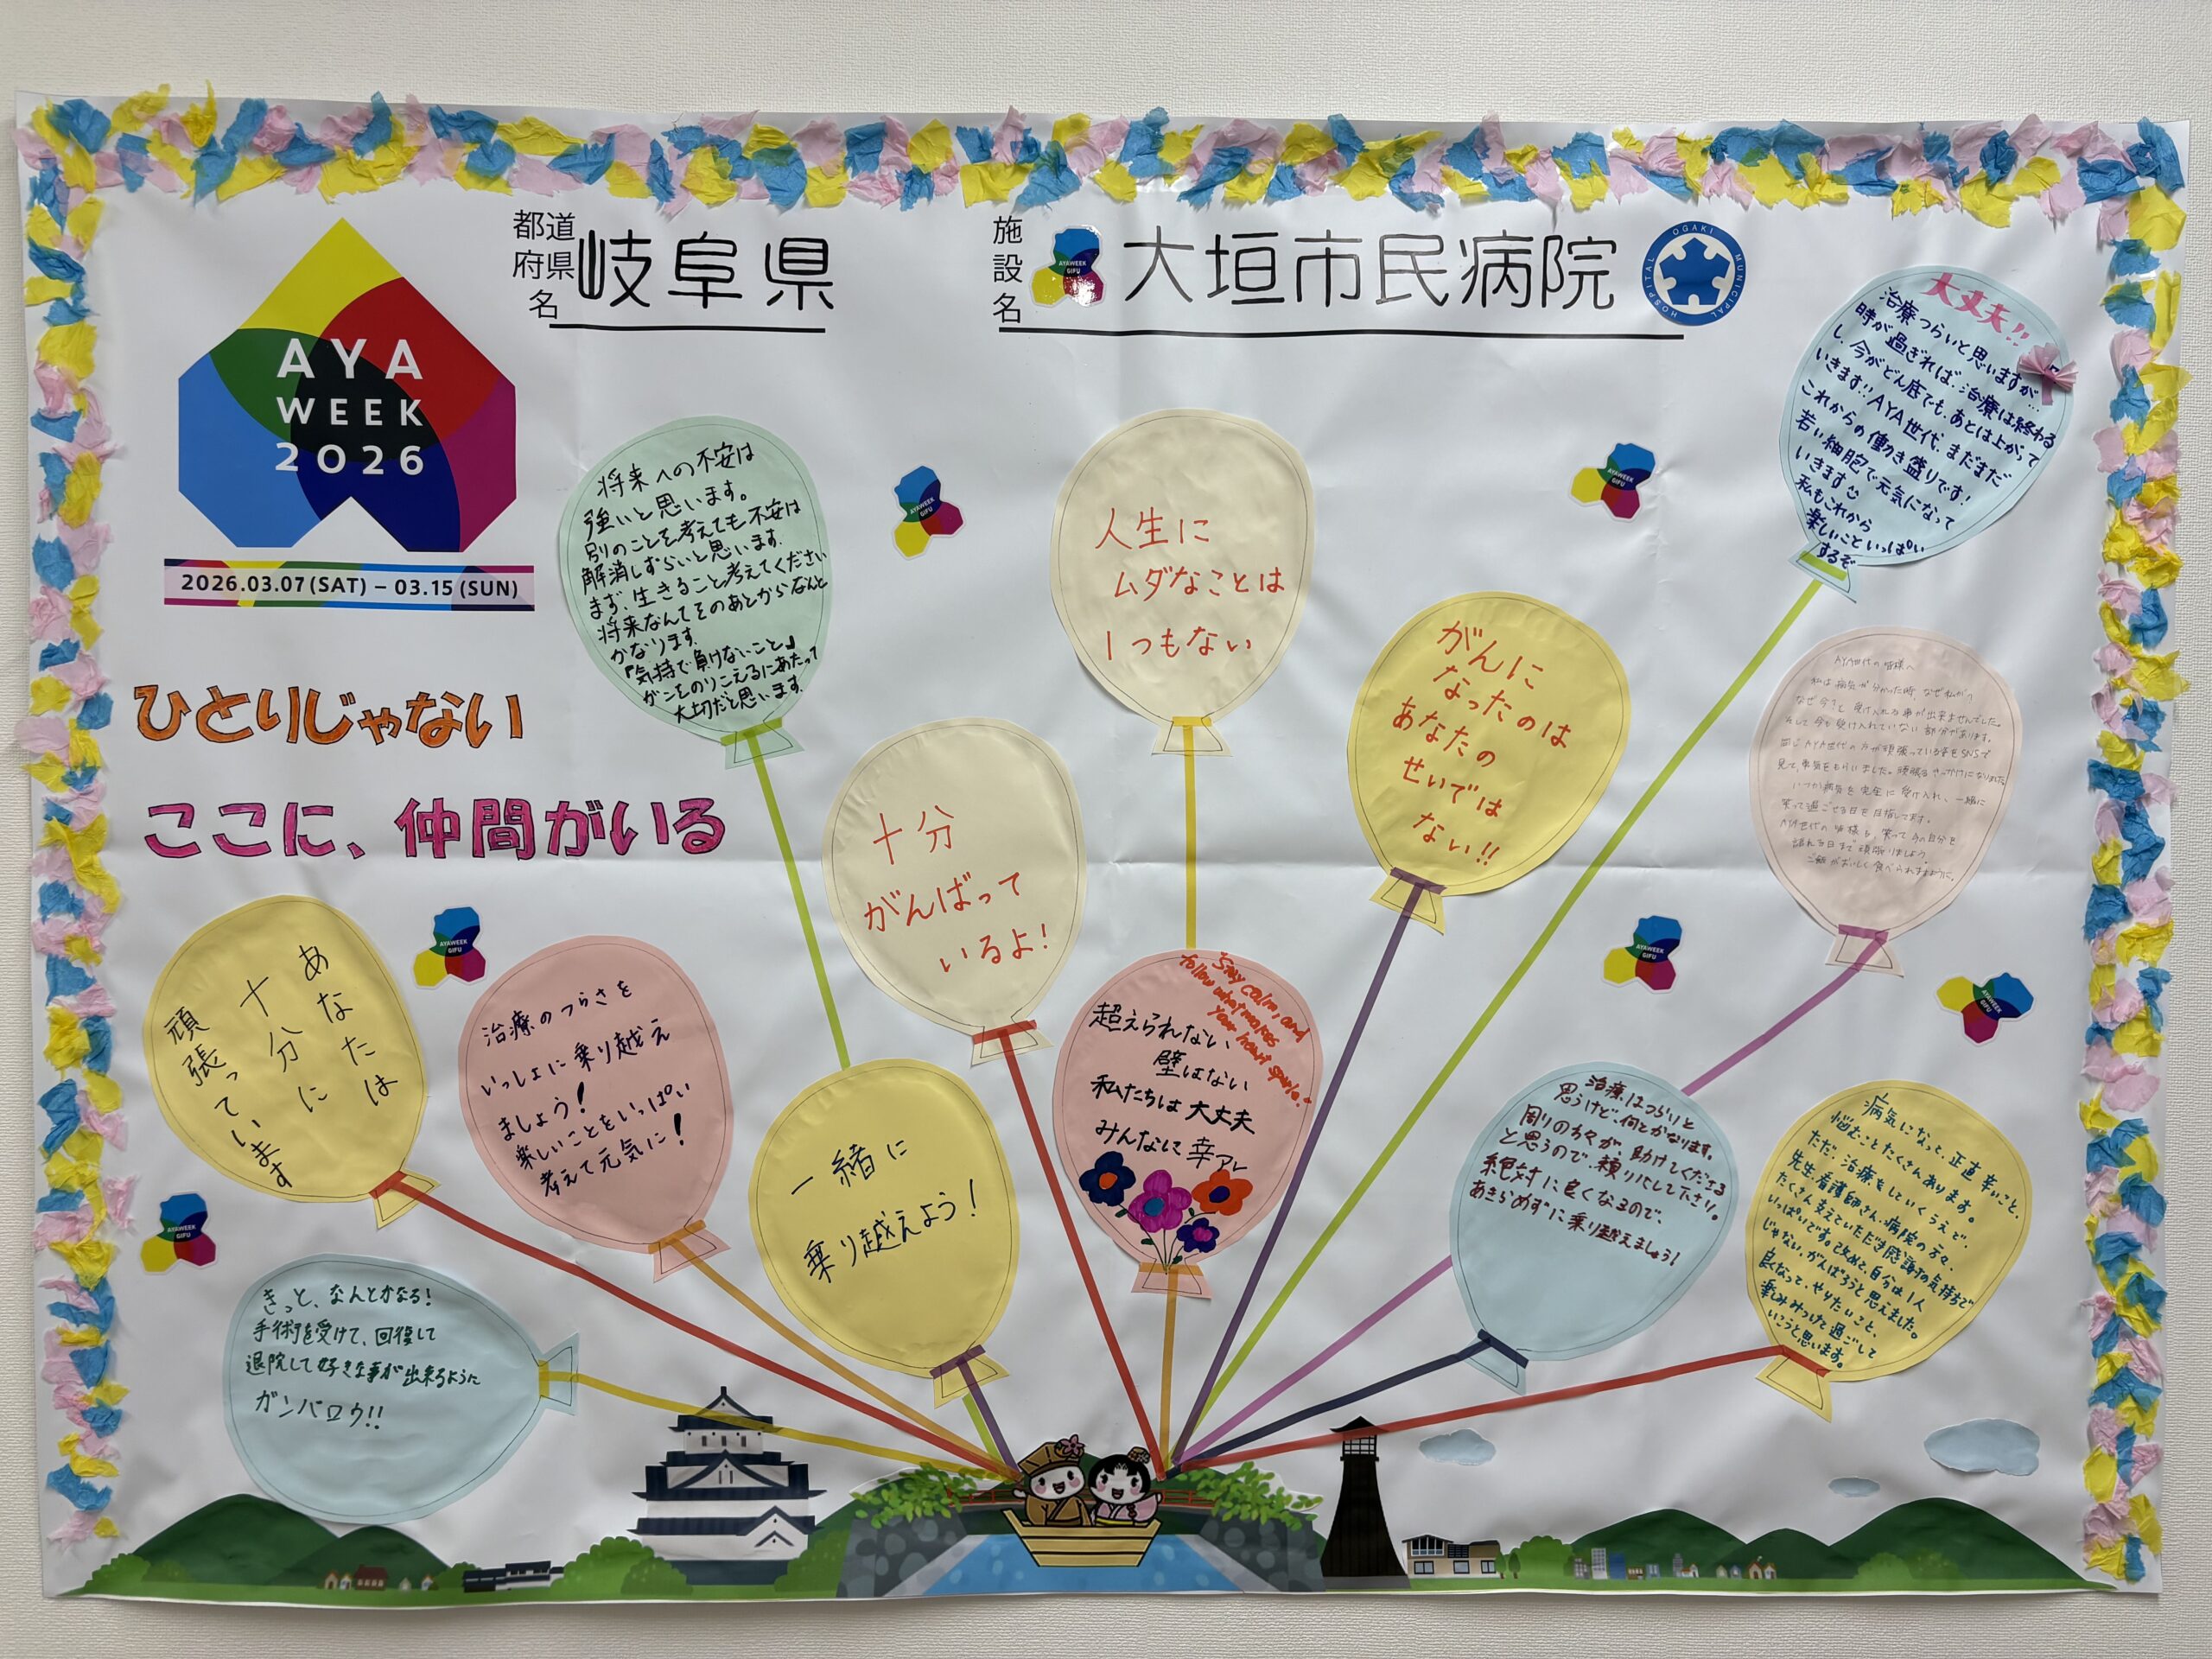 AYA
WEEK
2026
2026.03.07 (SAT) – 03.15 (SUN)
都道
府県
名
岐阜県
施
設
名
AYAWEEK
GIFU
大垣市民病院
OGAKI MUNICIPAL HOSPITAL
ひとりじゃない
ここに、仲間がいる
将来への不安は
強いと思います。
別のことを考えても不安は
解消しずらいと思います。
まず、生きること考えてください
将来なんてそのあとからなんと
かなります。
『気持で負けないこと』
がンをのりこえるにあたって
大切だと思います。
AYAWEEK
GIFU
人生に
ムダなことは
1つもない
AYAWEEK
GIFU
大丈夫!!
治療つらいと思いますが…
時が過ぎれば、治療は終わる
し、今がどん底でも、あとは上がって
いきます!!AYA世代、まだまだ
これからの働き盛りです!
若い細胞で元気になって
いきます
私もこれから
楽しいこといっぱい
するぞ
がんに
なったのは
あなたの
せいでは
ない!!
AYA世代の皆様へ
私は病気が分かった時 なぜ私が?
なぜ今?と 受け入れる事が出来ませんでした。
そして今も受け入れていない部分があります。
同じAYA世代の方が頑張っている姿をSNSで
見て、勇気をもらいました。頑張るきっかけになりました。
いつか病気を完全に受け入れ、一緒に
笑って過ごせる日を目指してます。
AYA世代の皆様も、笑って今の自分を
語れる日まで頑張りましょう。
ご飯がおいしく食べられますように。
十分
がんばって
いるよ!
AYAWEEK
GIFU
あなたは
十分に
頑張っています
治療のつらさを
いっしょに乗り越え
ましょう!
楽しいことをいっぱい
考えて元気に!
Stay calm, and
follow what makes
your heart sparkle!
超えられない
壁はない
私たちは大丈夫
みんなに幸アレ
AYAWEEK
GIFU
AYAWEEK
GIFU
一緒に
乗り越えよう!
治療はつらいと
思うけど、何とかなります。
周りの方々が、助けてくださる
と思うので、頼りにして下さい。
絶対に良くなるので、
あきらめずに乗り越えましょう!
病気になって、正直辛いこと、
悩むことたくさんあります。
ただ、治療をしていくうえで、
先生、看護師さん、病院の方々、
たくさん支えていただき感謝の気持ちで
いっぱいです。改めて、自分は1人
じゃない、がんばろうと思えました。
良くなって、やりたいこと、
楽しみみつけて過ごして
いこうと思います。
AYAWEEK
GIFU
きっと、なんとかなる!
手術を受けて、回復して
退院して好きな事が出来るように
ガンバロウ!!